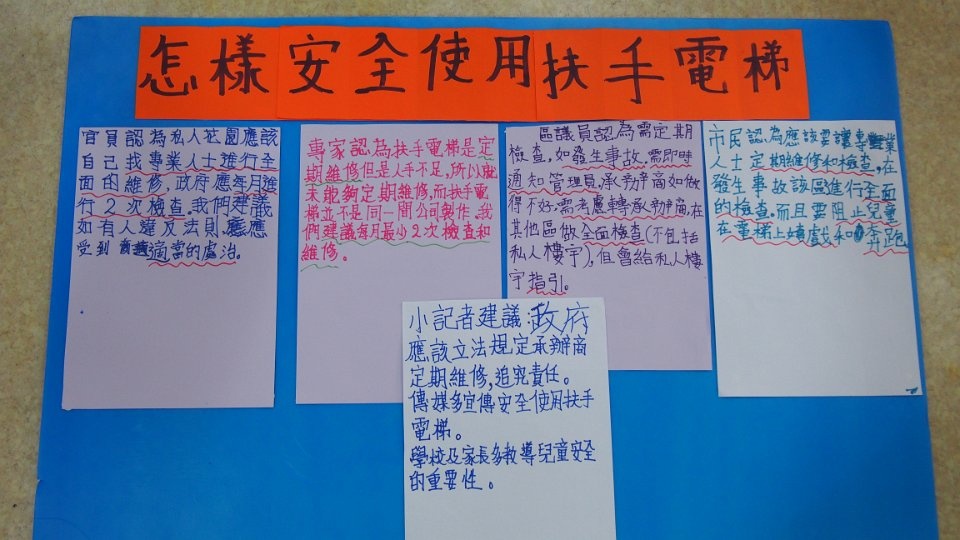 怎樣安全使用扶手電梯
官員認為私人花園應該
自己找專業人士進行全
面的維修,政府應每月進
行2次檢查。我們建議
如有人違反法則,應應
受到適當的處治。
專家認為扶手電梯是定
期維修但是人手不足,所以就
未能夠定期維修,而扶手電
梯並不是同一間公司製作。我
們建議每月最少2次檢查和
維修。
區議員認為需定期
檢查,如發生事故,需即時
通知管理員,承辦商如做
得不好,需考慮轉承辦商,在
其他區做全面檢查(不包括
私人樓宇),但會給私人樓
宇指引。
市民認為應該要讓專業
人士定期維修和檢查,在
發生事故該區進行全面
的檢查。而且要阻止兒童
在電梯上嬉戲和奔跑
小記者建議:政府
應該立法規定承辦商
定期維修,追究責任。
傳媒多宣傳安全使用扶手
電梯。
學校及家長多教導兒童安全
的重要性。